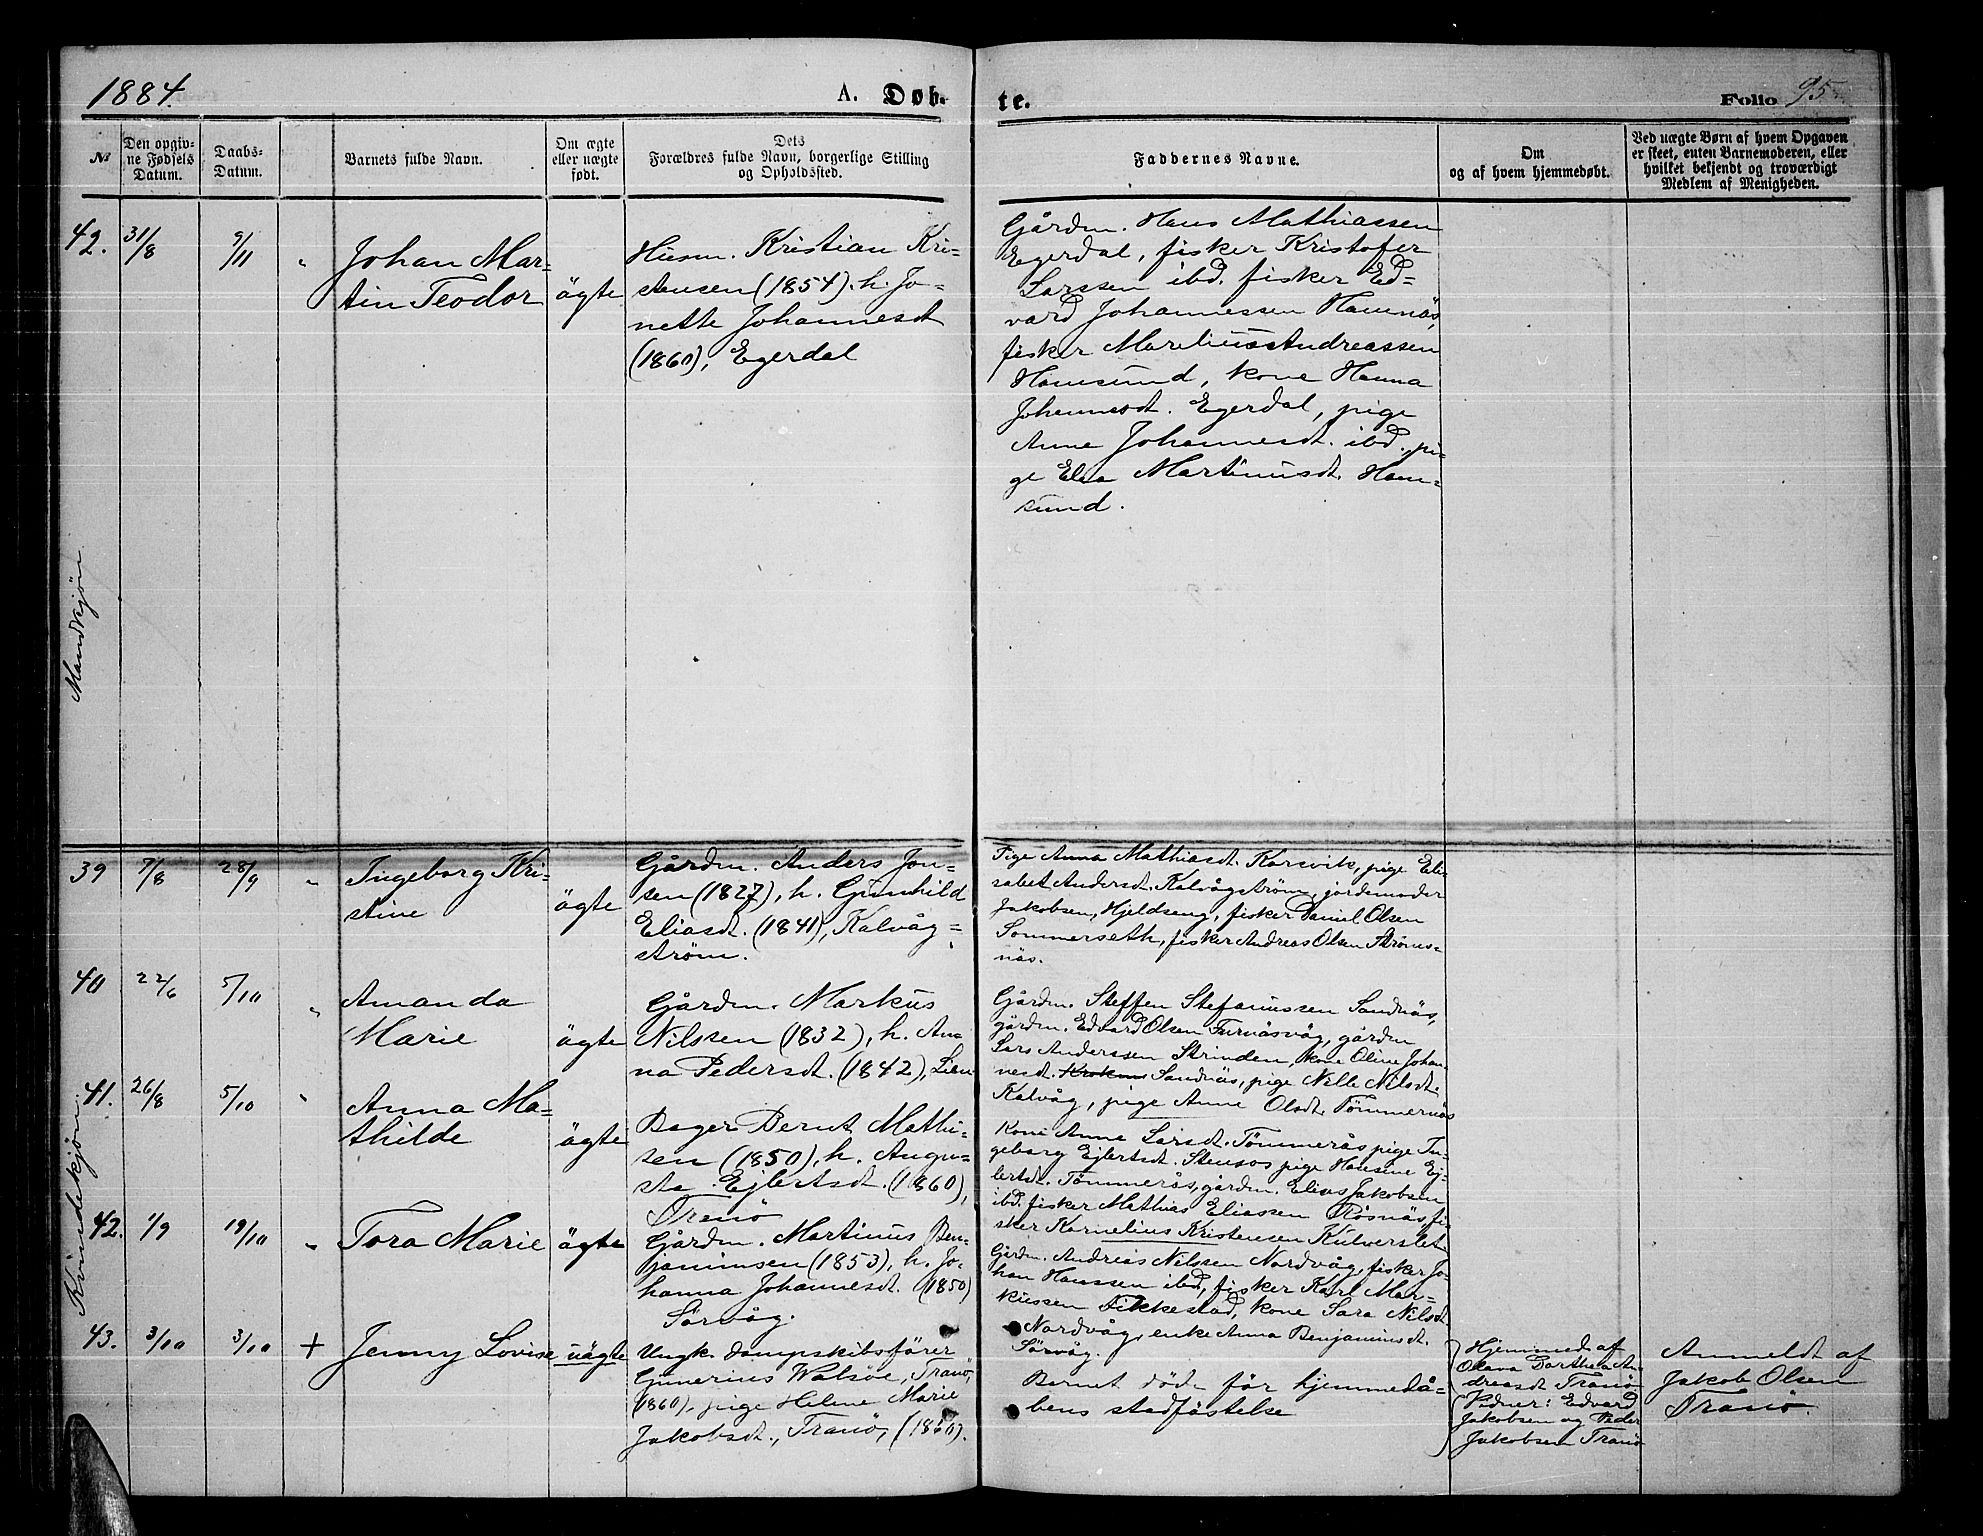 1884.
A. Døb-
te.
Folio 95
№
Den opgiv-
ne Fødsels
Datum.
Daabs-
Datum.
Barnets fulde Navn.
Om ægte
eller uægte
født.
Dets
Forældres fulde Navn, borgerlige Stilling
og Opholdssted.
Faddernes Navne.
Om
og af hvem hjemmedøbt.
Ved uægte Børn af hvem Opgaven
er skeet, enten Barnemoderen, eller
hvilket bekjendt og troværdigt
Medlem af Menigheden.
Mandkjøn
42.
31/8
9/11
"
Johan Mar-
tin Teodor
ägte
Husm. Kristian Kri-
stensen (1854). h. Jo-
nette Johannesdt
(1860), Egerdal
Gårdm. Hans Mathiassen
Egerdal, fisker Kristofer
Larssen ibd. fisker Ed-
vard Johannessen Hamnäs,
fisker Marelius Andreassen
Hamsund, kone Hanna
Johannesdt. Egerdal, pige
Anne Johannesdt. ibd., pi-
ge Elea Martinusdt. Ham-
sund.
Kvindekjøn.
39
7/8
28/9
"
Ingeborg Kri-
stine
ägte
Gårdm. Anders Jon-
sen (1827), h. Gunhild
Eliasdt. (1841), Kalvåg-
strøm.
Pige Anna Mathiasdt. Korsvik, pige Eli-
sabet Andersdt. Kalvågstrøm, jordemoder
Jakobsen, Hjeldseng, fisker Daniel Olsen
Sommerseth, fisker Andreas Olsen Strøms-
näs.
40
22/6
5/10
"
Amanda
Marie
ägte
Gårdm. Markus
Nilssen (1832), h. An-
na Pedersdt. (1842), Lien
Gårdm. Steffen Stefanussen Sandnäs,
gårdm. Edvard Olsen Furnäsvåg, gårdm
Lars Anderssen Strinden, kone Oline Johan-
nesdt. Sandnäs, pige Nelle Nilsdt.
Kalvåg, pige Anne Olsdt. Tømmernäs
41.
26/8
5/10
"
Anna Ma-
thilde
ägte
Bager Bernt Mathi-
sen (1850), h. Augu-
sta Ejlertsdt. (1860),
Tranö
Kone Anne Larsdt. Tömmerås, pige In-
geborg Ejlertsdt. Stensos, pige Hansine Ej-
lertsdt. Tömmerås, gårdm. Elias Jakobsen
ibd. fisker Mathias Eliassen Røsnäs, fi-
sker Kornelius Kristensen Kulverslet
42.
1/9
19/10
"
Tora Marie
ägte
Gårdm. Martinus Ben-
jaminsen (1853), h. Jo-
hanna Johannesdt. (1850)
Sørvåg.
Gårdm. Andreas Nilssen Nordvåg, fisker Jo-
han Hanssen ibd., fisker Karl Mar-
kussen Fikkestad, kone Sara Nilsdt.
Nordvåg, enke Anna Benjaminsdt.
Sørvåg.
43.
3/10
3/10
+
Jenny Lovise
uägte
Ungk. dampskibsfører
Gunerius Walsöe, Tranö,
(1860), pige Helene Marie
Jakobsdt., Tranö, (1860).
Barnet døde før hjemmedå-
bens stadfästelse
Hjemmed af
Olava Dorthea An-
dreasdt Tranö
Vidner: Edvard
Jakobsen og Peder
Jakobsen Tranö
Anmeldt af
Jakob Olsen
Tranö.